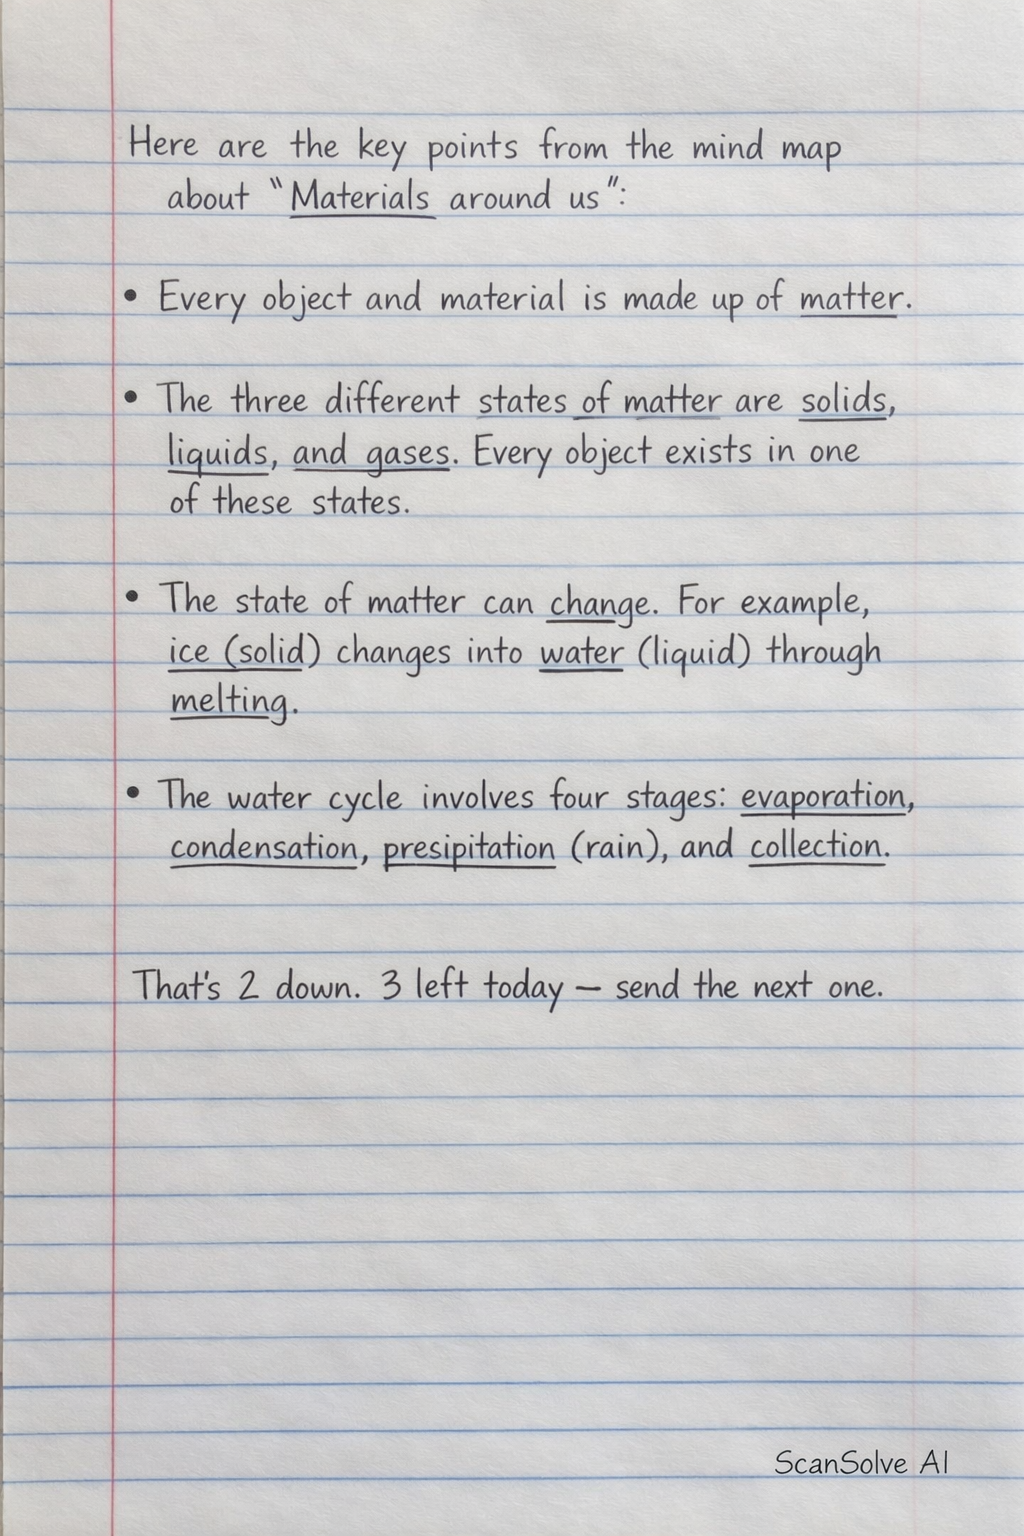 Here are the key points from the mind map
about "Materials around us":
• Every object and material is made up of matter.
• The three different states of matter are solids,
liquids, and gases. Every object exists in one
of these states.
• The state of matter can change. For example,
ice (solid) changes into water (liquid) through
melting.
• The water cycle involves four stages: evaporation,
condensation, presipitation (rain), and collection.
That's 2 down. 3 left today — send the next one.
ScanSolve AI